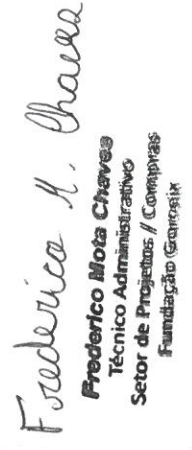 Frederico M. Chaves
Frederico Mota Chaves
Técnico Administrativo
Setor de Projetos // Compras
Fundação Gorceix